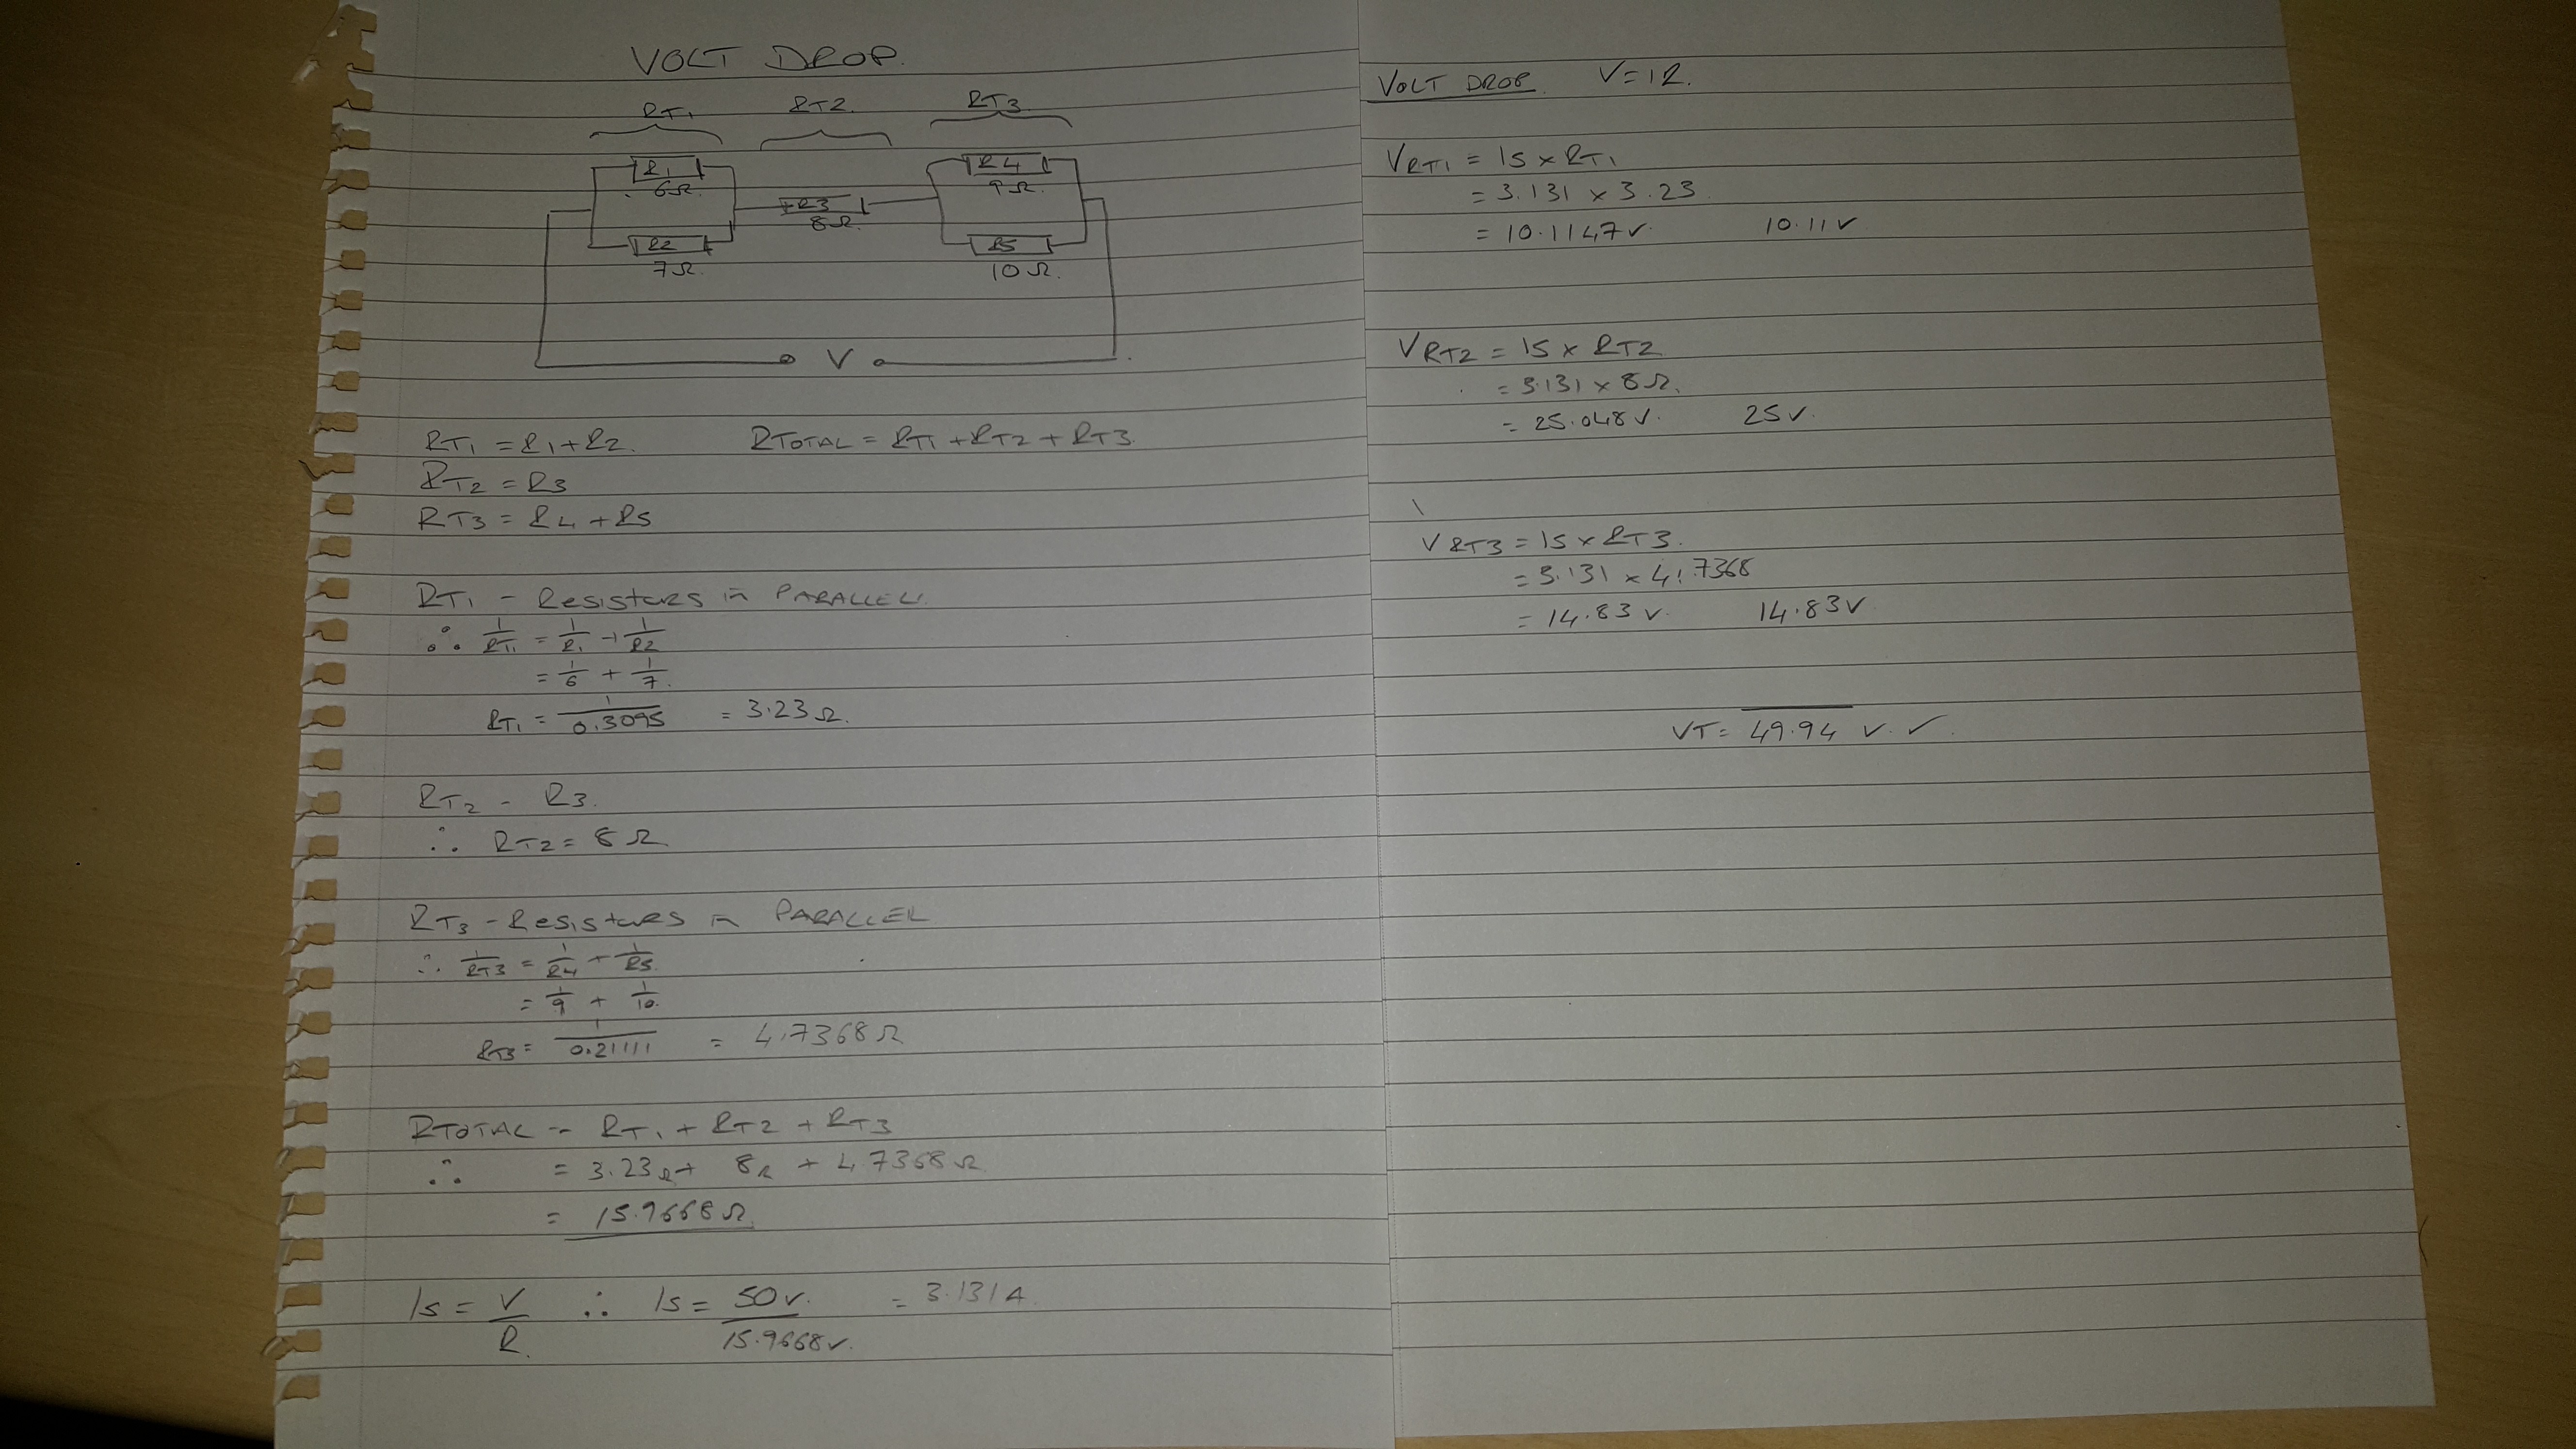 VOLT DROP.
RT1 RT2. RT3
R1
6Ω.
R2
7Ω.
R3
8Ω
R4
9Ω.
R5
10Ω.
V
RT1 = R1+R2. RTOTAL = RT1 + RT2 + RT3.
RT2 = R3
RT3 = R4 + R5
RT1 - Resistors in PARALLEL.
∴ 1/RT1 = 1/R1 + 1/R2
= 1/6 + 1/7.
RT1 = 1/0.3095 = 3.23Ω.
RT2 - R3.
∴ RT2 = 8Ω
RT3 - Resistors in PARALLEL
∴ 1/RT3 = 1/R4 + 1/R5.
= 1/9 + 1/10.
RT3 = 1/0.21111 = 4.7368Ω
RTOTAL - RT1 + RT2 + RT3
∴ = 3.23Ω + 8Ω + 4.7368Ω
= 15.9668Ω.
Is = V/R. ∴ Is = 50v./15.9668v. = 3.131A.
VOLT DROP. V=IR.
VRT1 = Is × RT1
= 3.131 × 3.23
= 10.1147v. 10.11v
VRT2 = Is × RT2
= 3.131 × 8Ω.
= 25.048v. 25v.
VRT3 = Is × RT3.
= 3.131 × 4.7368
= 14.83v. 14.83v.
VT = 49.94 v. ✓